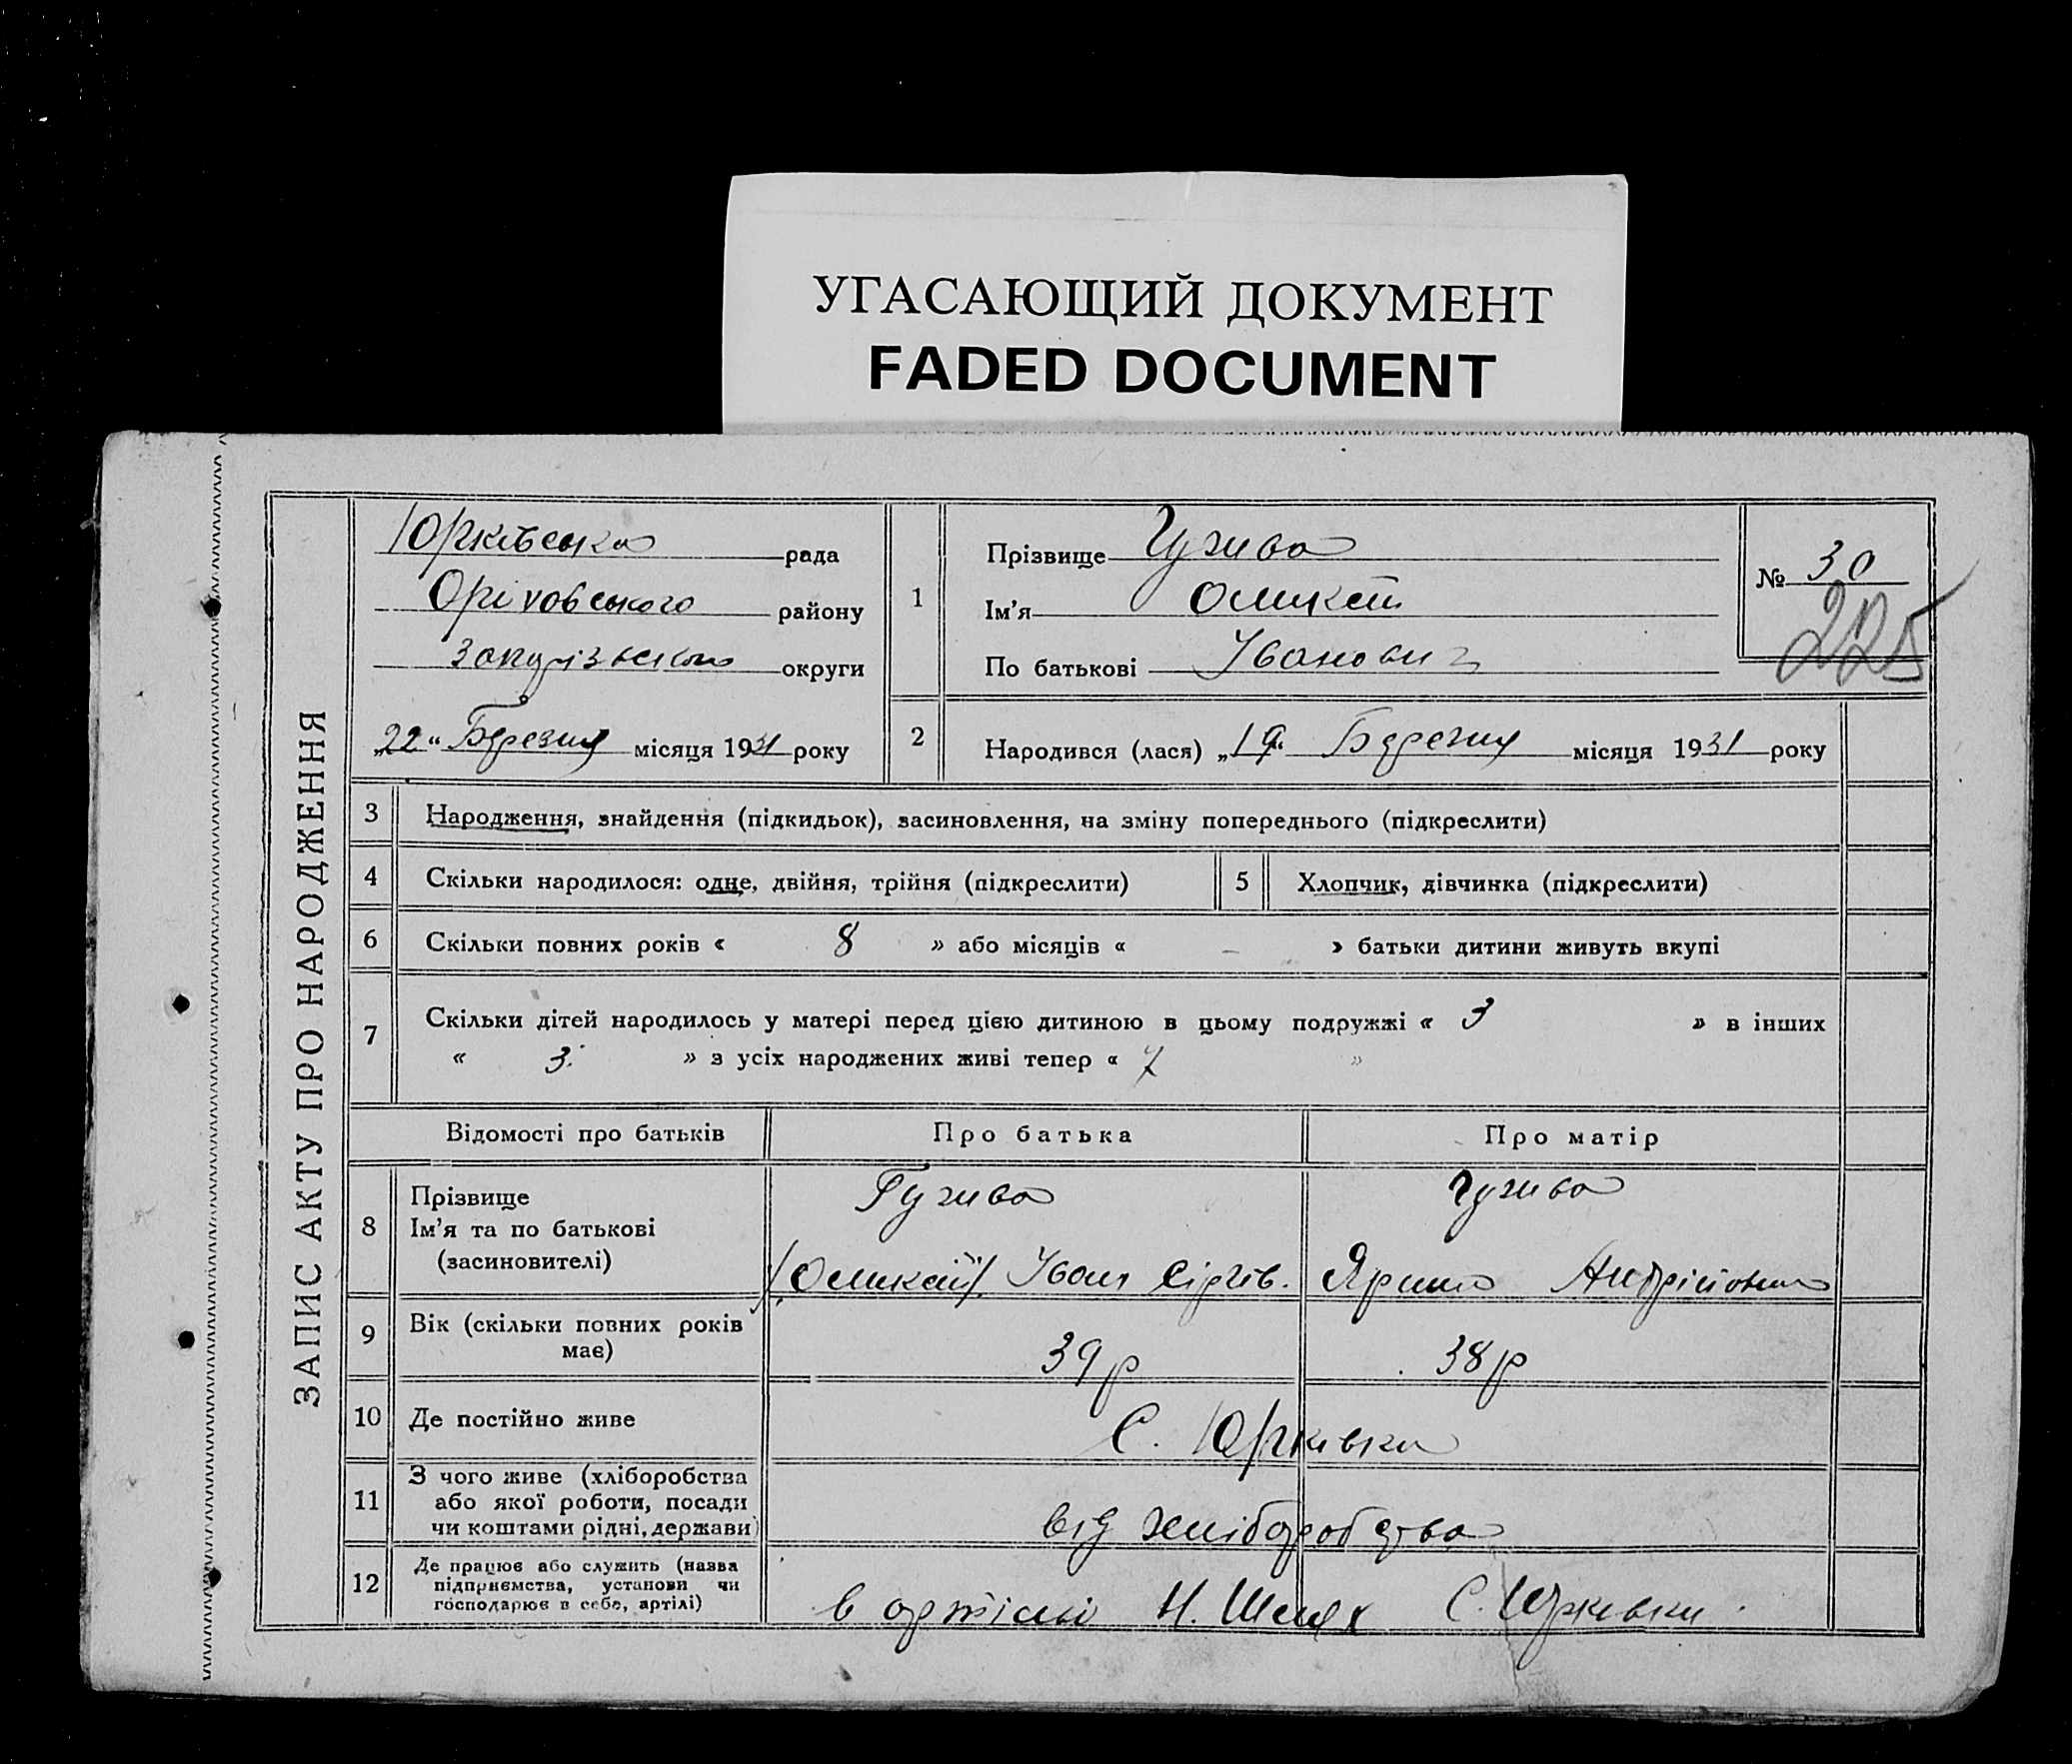 УГАСАЮЩИЙ ДОКУМЕНТ
FADED DOCUMENT
ЗАПИС АКТУ ПРО НАРОДЖЕННЯ
Юрківська рада
Оріховського району
Запорізького округи
„22“ Березня місяця 1931 року
1
Прізвище Гужва
Ім'я Оликет
По батькові Іванович
№ 30
225
2
Народився (лася) „19“ Березня місяця 1931 року
3 Народження, знайдення (підкидьок), засиновлення, на зміну попереднього (підкреслити)
4 Скільки народилося: одне, двійня, трійня (підкреслити)
5 Хлопчик, дівчинка (підкреслити)
6 Скільки повних років « 8 » або місяців « – » батьки дитини живуть вкупі
7 Скільки дітей народилось у матері перед цією дитиною в цьому подружжі « 3 » в інших
« 3 » з усіх народжених живі тепер « 7 »
Відомості про батьків Про батька Про матір
8 Прізвище Гужва Гужва
Ім'я та по батькові
(засиновителі) Іван Сіргів. Ярина Андрійовна
9 Вік (скільки повних років має) 39 р 38 р
10 Де постійно живе С. Юрківка
11 З чого живе (хліборобства
або якої роботи, посади
чи коштами рідні, держави) від хліборобства
12 Де працює або служить (назва
підприємства, установи чи
господарює в себе, артілі) в артілі Н. Шлях С. Юрківки.